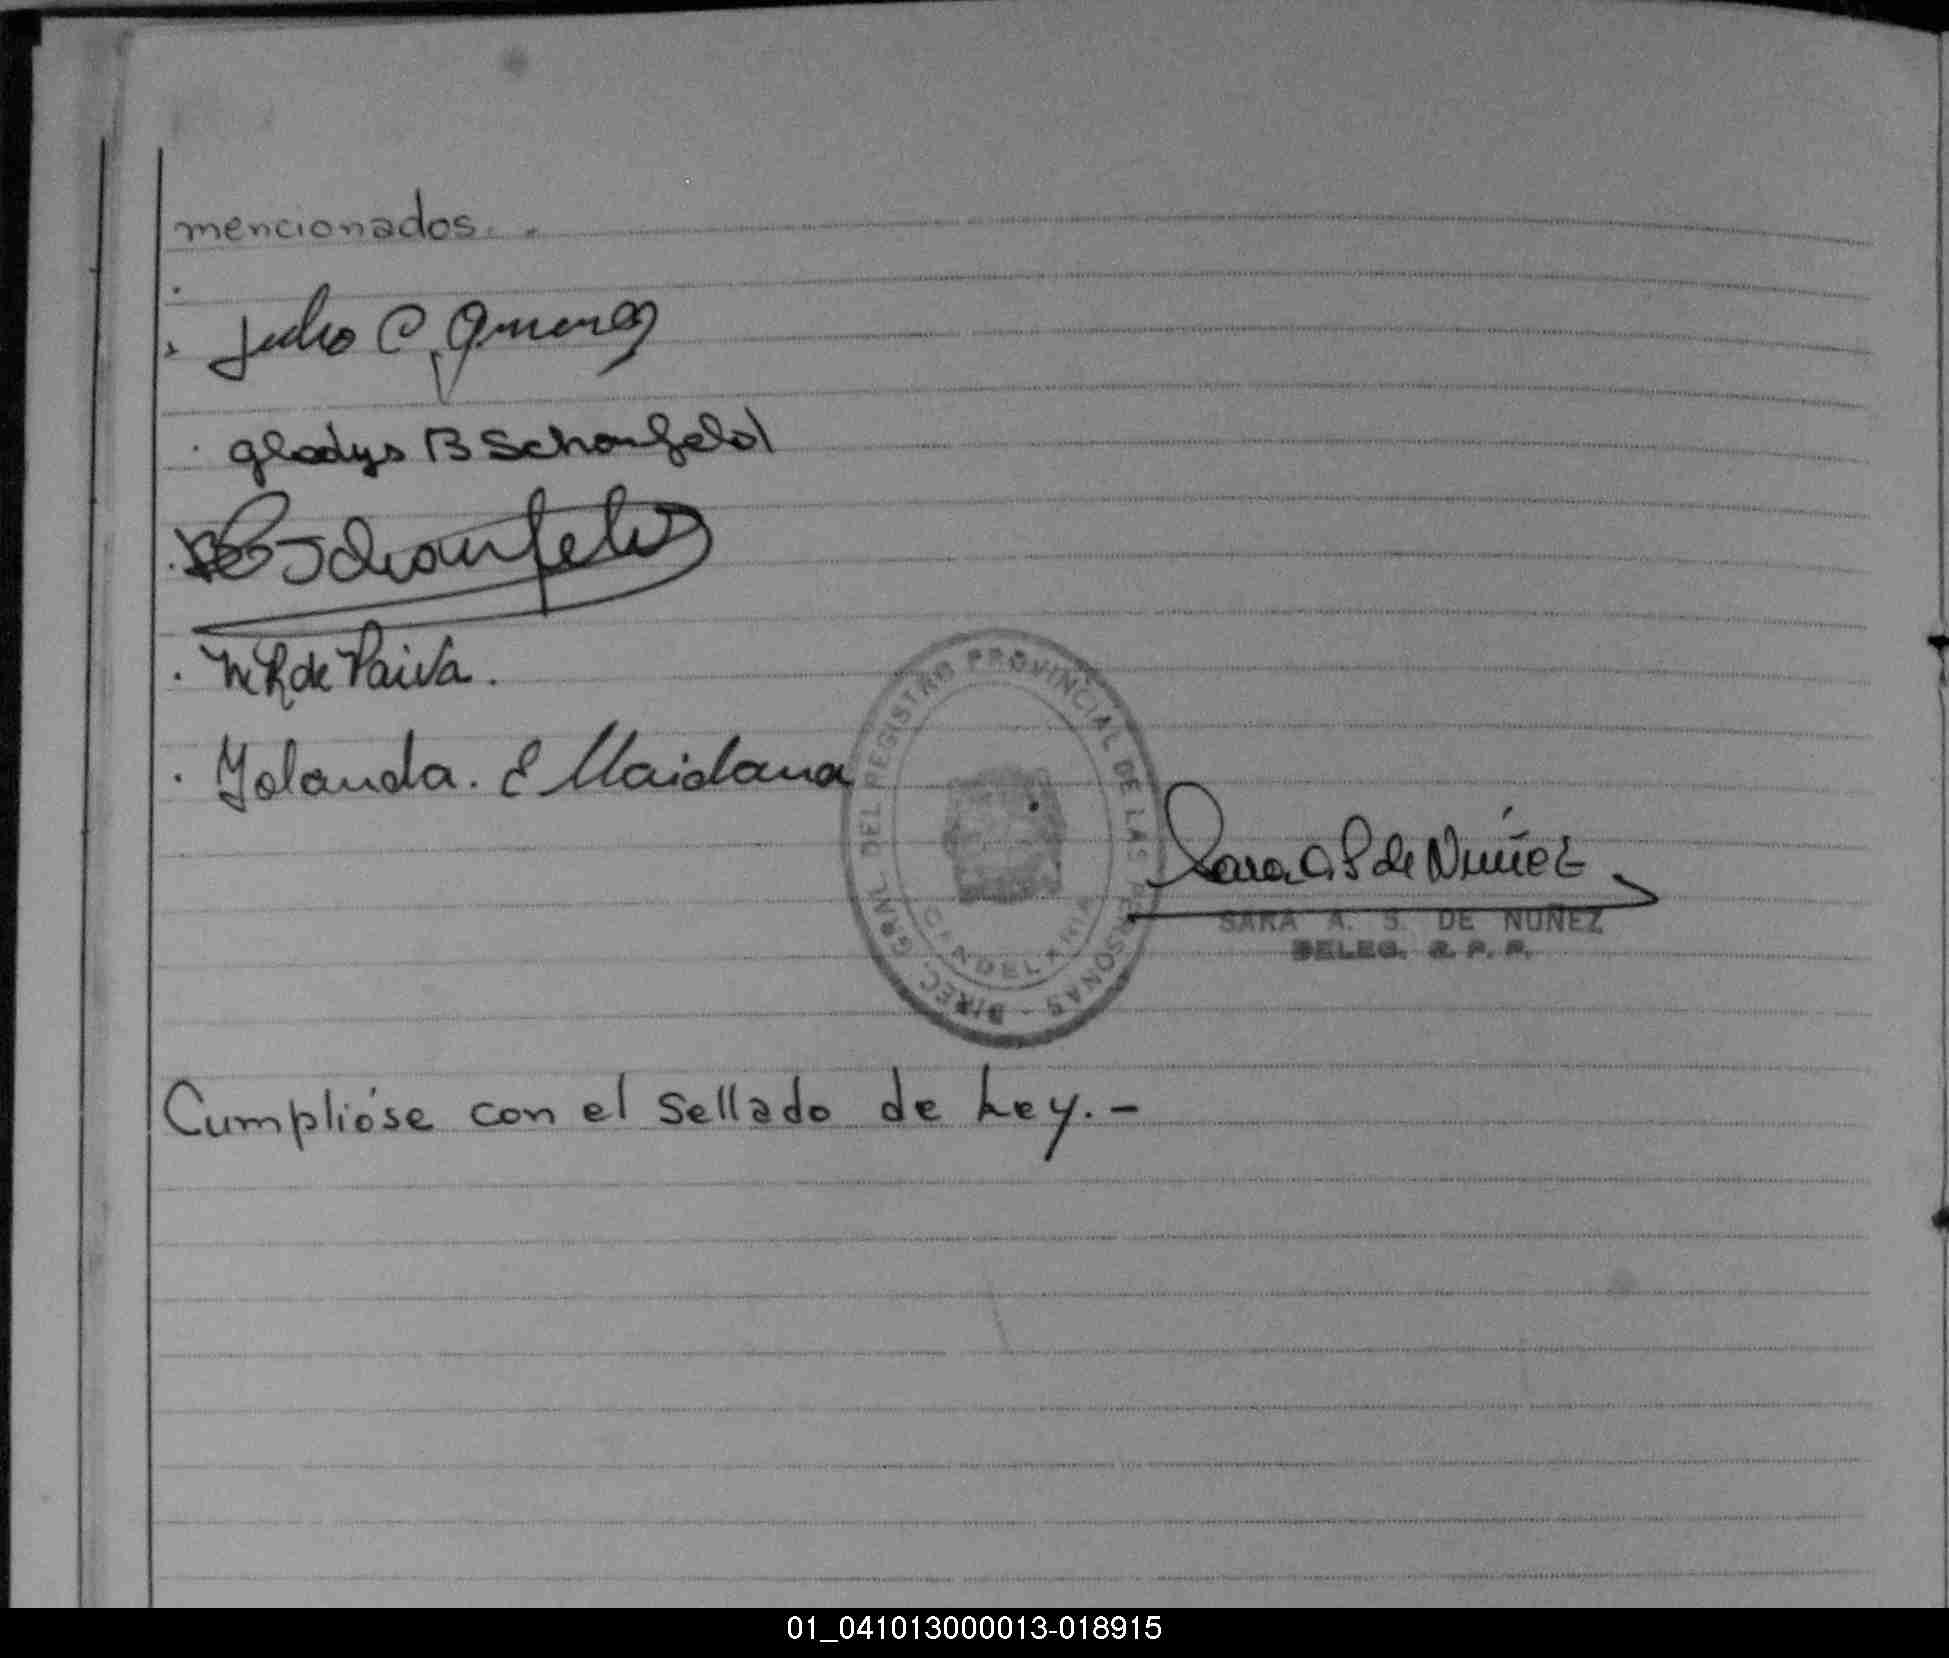 mencionados. -
Julio C Gimenez
Gladys B Schonfeld
Schonfeld
M R de Paiva.
Yolanda. E Maidana
DIREC. GRAL. DEL REGISTRO PROVINCIAL DE LAS PERSONAS -
CANDELARIA
Sara A S de Nuñez
SARA A. S. DE NUÑEZ
DELEG. R. P. P.
Cumplióse con el sellado de Ley.-
01_041013000013-018915